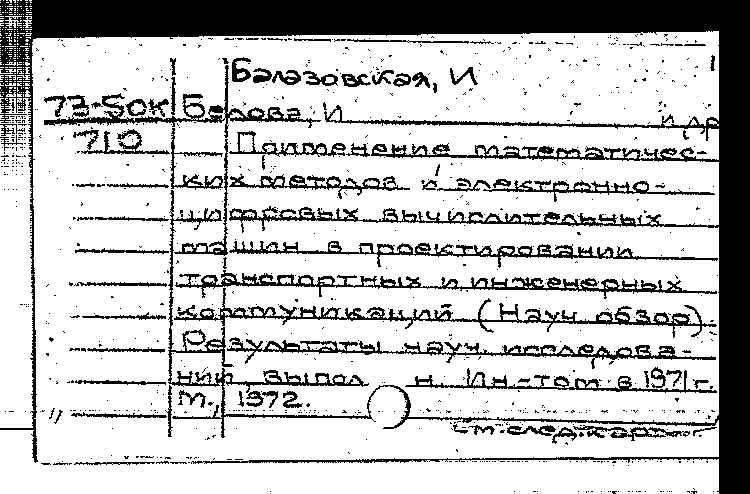 Балазовская, И 1
73-50К Белова, И и др
710 Применение математичес-
ких методов и электронно-
цифровых вычислительных
машин в проектировании
транспортных и инженерных
коммуникаций (Науч. обзор).
Результаты науч. исследова-
ний, выпол н. Ин-том в 1971 г.
М., 1972.